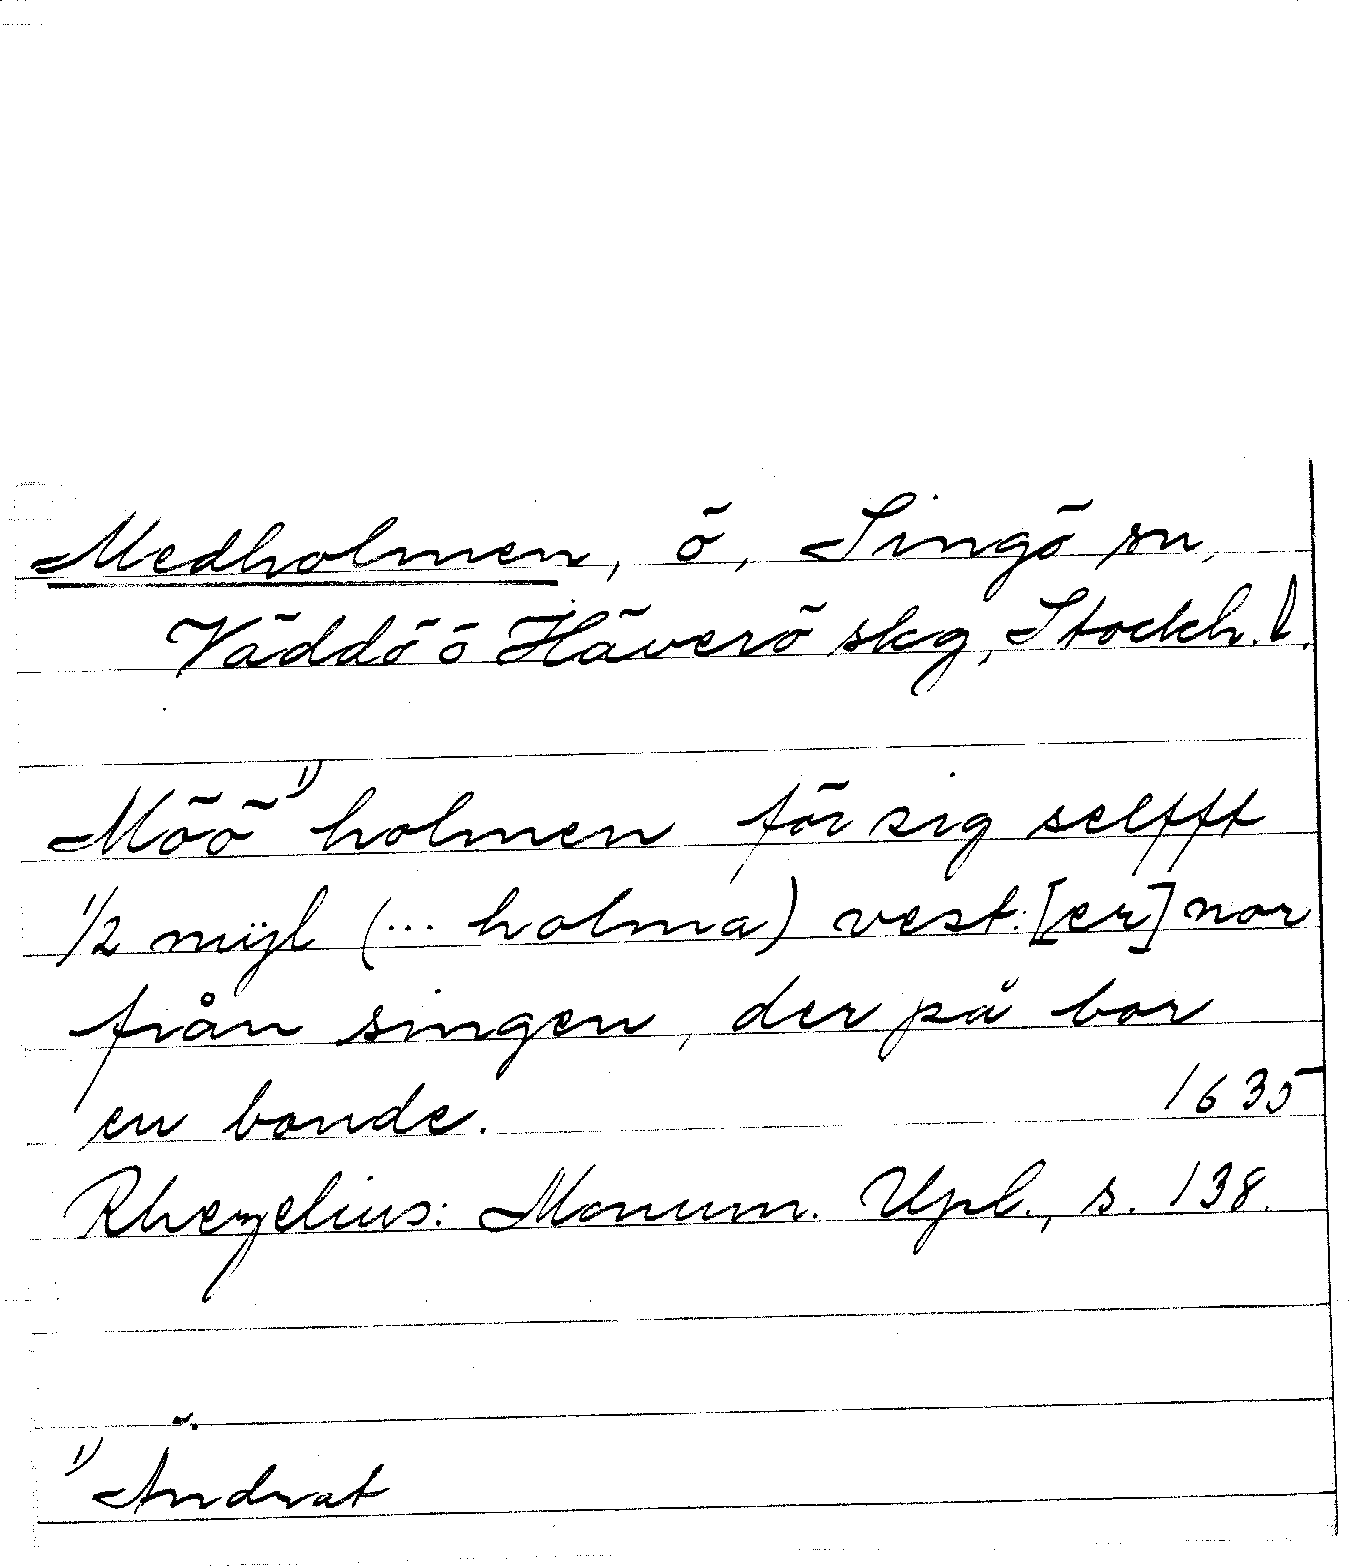 Medholmen, ö, Singö sn,
Väddö ö Häverö skg, Stockh. l.
Möö¹⁾ holmen för sig selfft
1/2 mijl (... holma) vest: [er] nor
från singen, der på bor
en bonde. 1635
Rhezelius: Monum. Upl., s. 138.
¹⁾ Ändrat